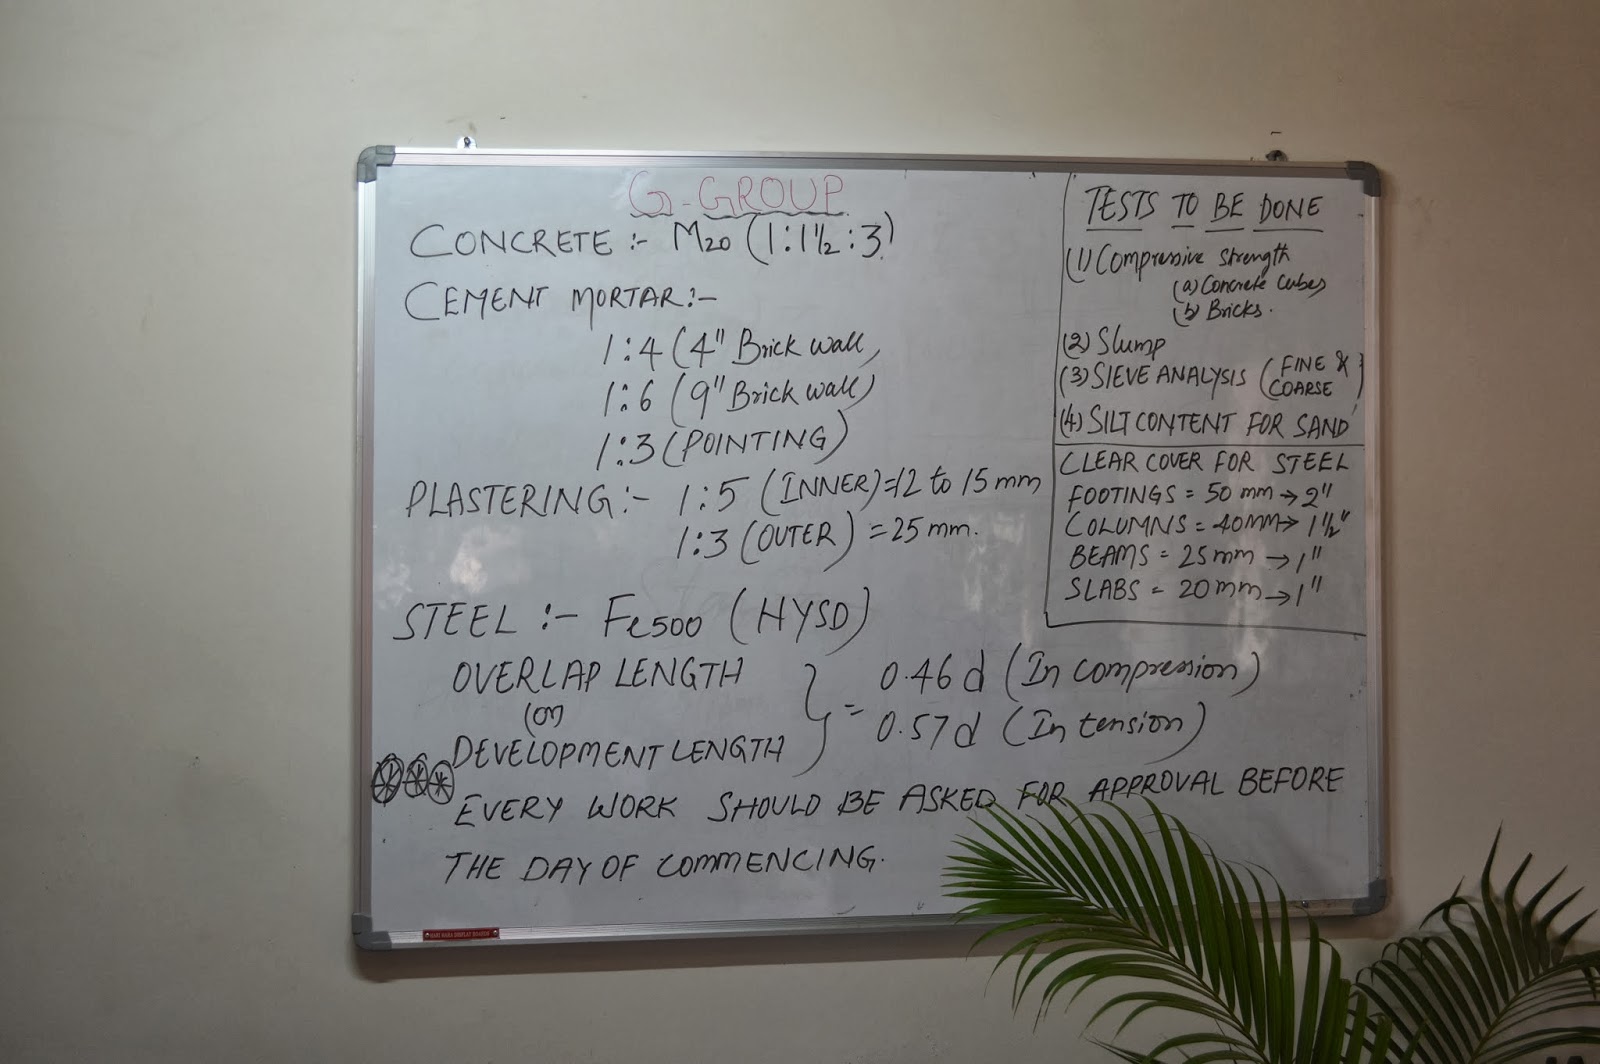 G-GROUP
CONCRETE :- M20 (1:1½:3)
CEMENT MORTAR:-
1:4 (4" Brick wall,
1:6 (9" Brick wall)
1:3 (POINTING)
PLASTERING:- 1:5 (INNER)=12 to 15 mm
1:3 (OUTER) = 25 mm.
STEEL :- Fe500 (HYSD)
OVERLAP LENGTH
(or)
DEVELOPMENT LENGTH
} = 0.46 d (In compression)
0.57 d (In tension)
EVERY WORK SHOULD BE ASKED FOR APPROVAL BEFORE
THE DAY OF COMMENCING.
TESTS TO BE DONE
(1) Compressive strength
(a) Concrete cubes
(b) Bricks.
(2) Slump
(3) SIEVE ANALYSIS (FINE & COARSE)
(4) SILT CONTENT FOR SAND
CLEAR COVER FOR STEEL
FOOTINGS = 50 mm → 2"
COLUMNS = 40MM → 1½"
BEAMS = 25 mm → 1"
SLABS = 20 mm → 1"